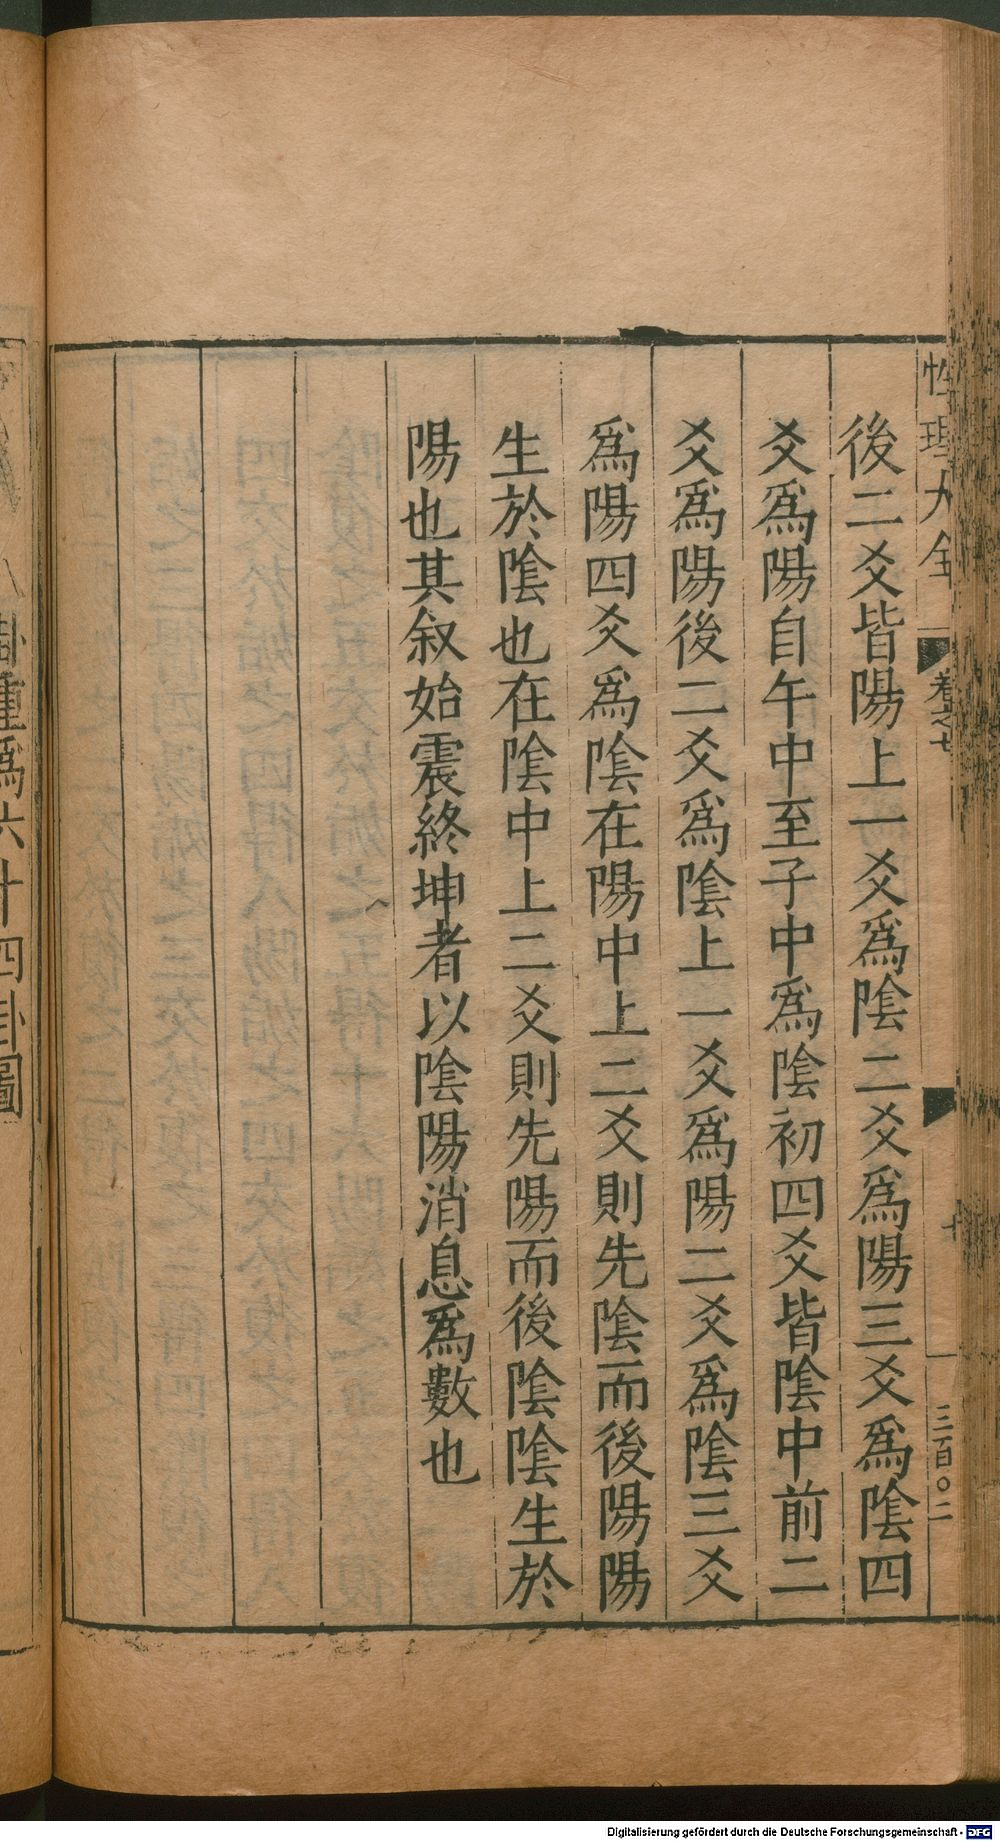 性理大全
卷之七
十
三百〇二
後二爻皆陽上一爻爲陰二爻爲陽三爻爲陰四
爻爲陽自午中至子中爲陰初四爻皆陰中前二
爻爲陽後二爻爲陰上一爻爲陽二爻爲陰三爻
爲陽四爻爲陰在陽中上二爻則先陰而後陽陽
生於陰也在陰中上二爻則先陽而後陰陰生於
陽也其叙始震終坤者以陰陽消息爲數也
卦重爲六十四卦圖
Digitalisierung gefördert durch die Deutsche Forschungsgemeinschaft - DFG